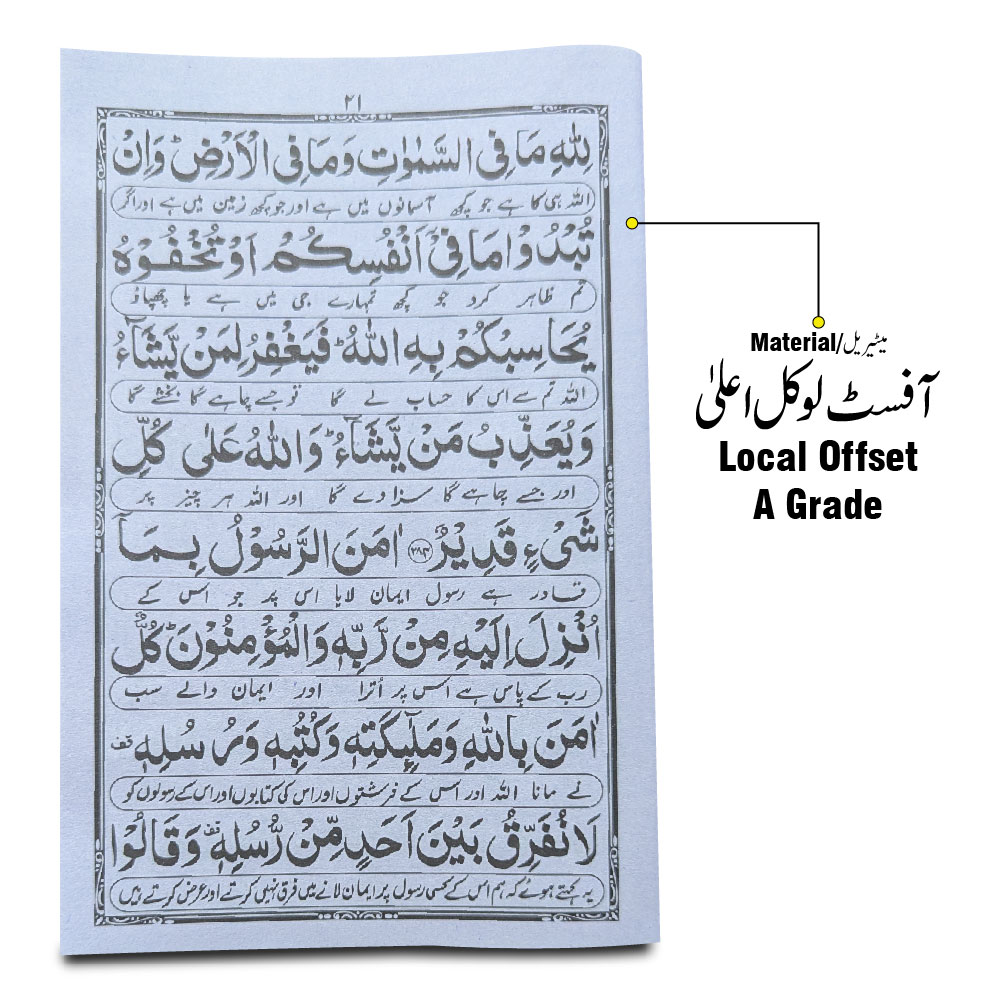 ٢١
لِلّٰهِ مَا فِی السَّمٰوٰتِ وَمَا فِی الْاَرْضِ ؕ وَاِنْ
اللہ ہی کا ہے جو کچھ آسمانوں میں ہے اور جو کچھ زمین میں ہے اور اگر
تُبْدُوْا مَا فِیْۤ اَنْفُسِكُمْ اَوْ تُخْفُوْهُ
تم ظاہر کرو جو کچھ تمہارے جی میں ہے یا چھپاؤ
یُحَاسِبْكُمْ بِهِ اللّٰهُ ؕ فَیَغْفِرُ لِمَنْ یَّشَآءُ
اللہ تم سے اس کا حساب لے گا تو جسے چاہے گا بخشے گا
وَیُعَذِّبُ مَنْ یَّشَآءُ ؕ وَاللّٰهُ عَلٰی كُلِّ
اور جسے چاہے گا سزا دے گا اور اللہ ہر چیز پر
شَیْءٍ قَدِیْرٌ ﴿۲۸۴﴾ اٰمَنَ الرَّسُوْلُ بِمَاۤ
قادر ہے رسول ایمان لایا اس پر جو اس کے
اُنْزِلَ اِلَیْهِ مِنْ رَّبِّهٖ وَالْمُؤْمِنُوْنَ ؕ كُلٌّ
رب کے پاس ہے اس پر اُترا اور ایمان والے سب
اٰمَنَ بِاللّٰهِ وَمَلٰٓئِكَتِهٖ وَكُتُبِهٖ وَرُسُلِهٖ قف
نے مانا اللہ اور اس کے فرشتوں اور اس کی کتابوں اور اس کے رسولوں کو
لَا نُفَرِّقُ بَیْنَ اَحَدٍ مِّنْ رُّسُلِهٖ قف وَقَالُوْا
یہ کہتے ہوئے کہ ہم اس کے کسی رسول پر ایمان لانے میں فرق نہیں کرتے اور عرض کرتے ہیں
Material/میٹیریل
آفسٹ لوکل اعلیٰ
Local Offset
A Grade